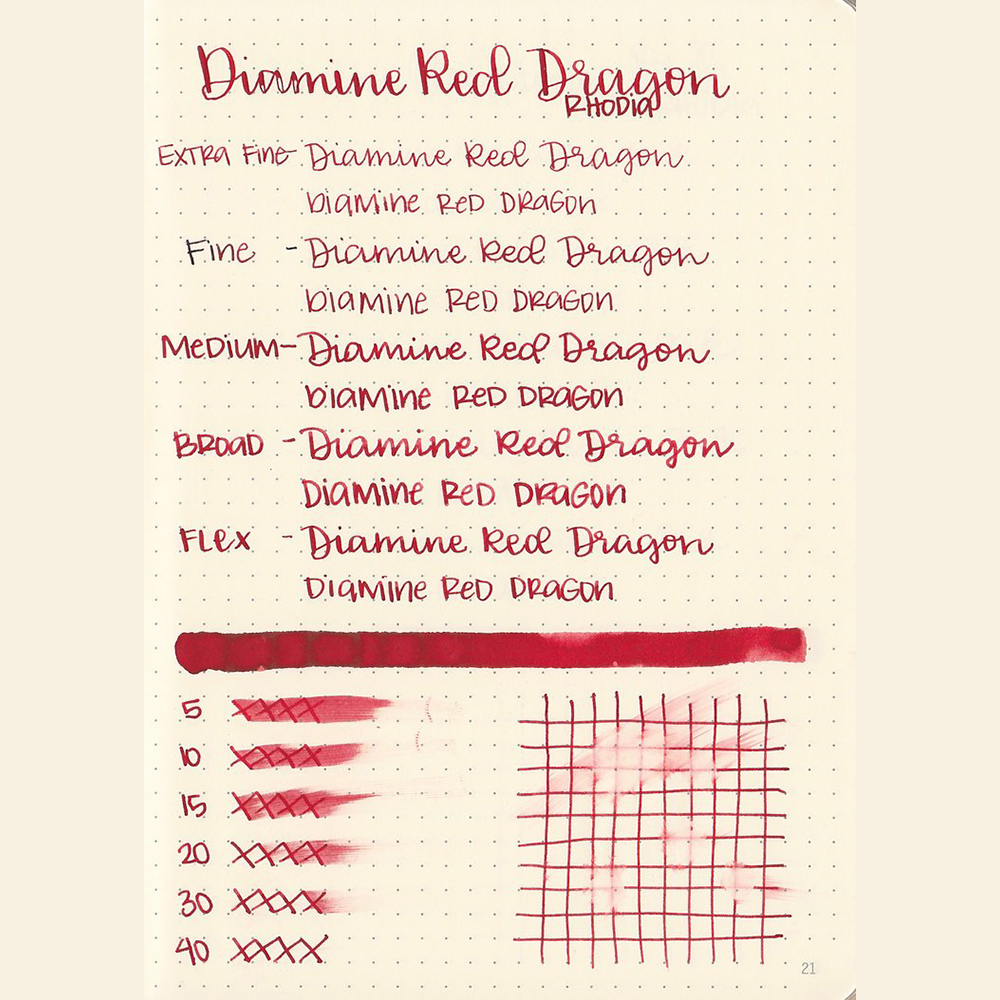 Diamine Red Dragon
RHODIA
EXTRA Fine - Diamine Red Dragon
DIAMINE RED DRAGON
Fine - Diamine Red Dragon
DIAMINE RED DRAGON
MEDIUM - Diamine Red Dragon
DIAMINE RED DRAGON
BROAD - Diamine Red Dragon
DIAMINE RED DRAGON
FLEX - Diamine Red Dragon
DIAMINE RED DRAGON
5 XXXX
10 XXXX
15 XXXX
20 XXXX
30 XXXX
40 XXXX
21